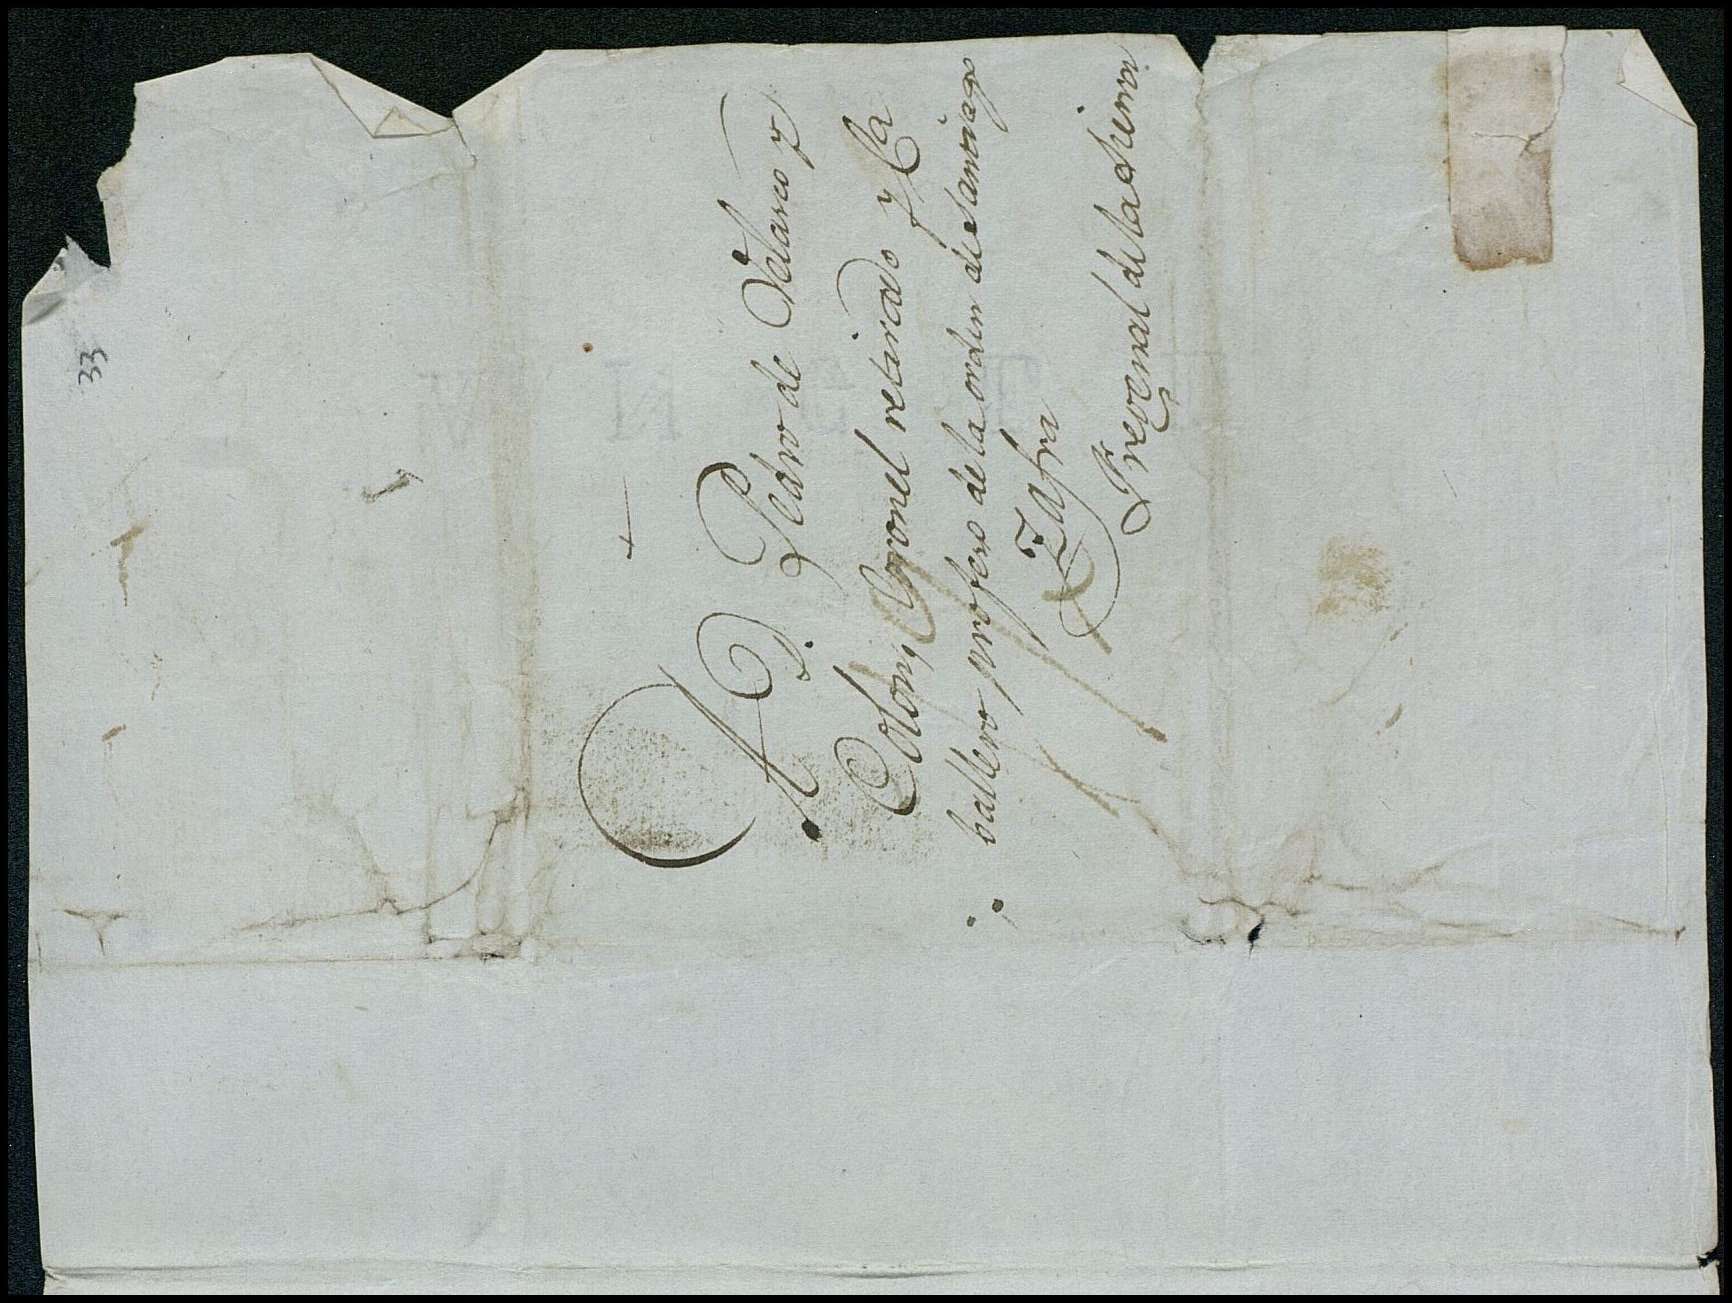 33
+
A D. Pedro de Velasco y
Colon, Coronel retirado y Ca
ballero profeso de la orden de Santiago
Zafra
Fregenal de la Sierra